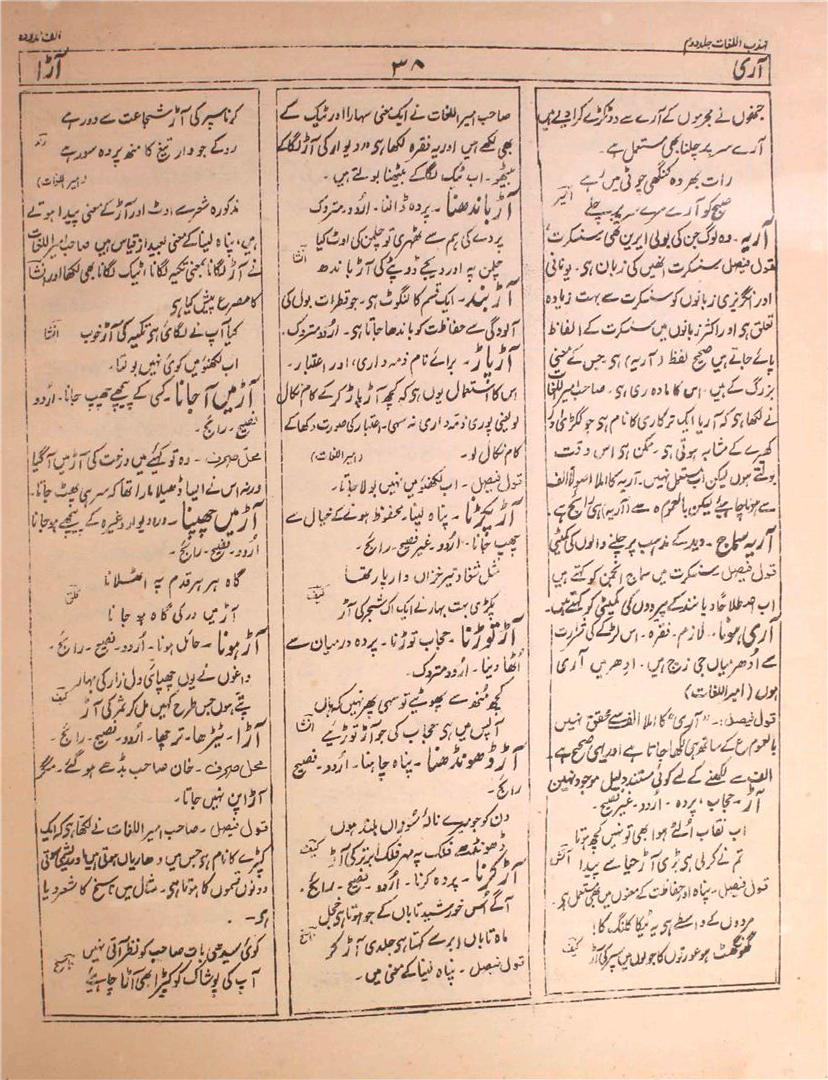 مہذب اللغات جلد دوم
الف ممدودہ
آری
۳۸
آڑا
جنھوں نے مجرموں کے آرے سے دو ٹکڑے کرا دیے ہیں
آرے سر پر چلنا بھی مستعمل ہے۔
رات بھر وہ کنگھی چوٹی میں رہے
صبح کو آرے مرے سر پر چلے
امیر
آریہ۔ وہ لوگ جن کی بولی ایرین تھی سنسکرت
قول فیصل۔ سنسکرت انھیں کی زبان ہی۔ یونانی
اور انگریزی زبانوں کو سنسکرت سے بہت زیادہ
تعلق ہی اور اکثر زبانوں میں سنسکرت کے الفاظ
پائے جاتے ہیں صحیح لفظ (آریہ) ہی جس کے معنی
بزرگ کے ہیں۔ اس کا مادہ ری ہی۔ صاحب امیر اللغات
نے لکھا ہی کہ آریا ایک ترکاری کا نام ہی جو ککڑی اور
کھیرے کے مشابہ ہوتی ہی۔ ممکن ہی اس وقت
بولتے ہوں لیکن اب مستعمل نہیں۔ آریہ کا املا اصولاً الف
سے ہونا چاہیے لیکن بالعموم ہ سے (آریہ) ہی رائج ہے۔
آریہ سماج۔ وید کے مذہب پر چلنے والوں کی کمیٹی
قول فیصل سنسکرت میں سماج انجمن کو کہتے ہیں
اب اصطلاحاً دیانند کے پیروؤں کی کمیٹی کو کہتے ہیں۔
آری ہونا۔ لازم۔ فقرہ۔ اس لڑکے کی شرارت
سے اُدھر میاں جی زچ ہیں۔ ادھر میں آری
ہوں (امیر اللغات)
قول فیصل:۔ "آری" کا املا الف سے محقق نہیں
بالعموم ع کے ساتھ ہی لکھا جاتا ہے اور یہی صحیح ہے
الف سے لکھنے کے لیے کوئی مستند دلیل موجود نہیں
آڑ۔ حجاب، پردہ۔ اردو۔ غیر فصیح۔
اب نقاب الٹے ہوا بھی تو نہیں کچھ ہوتا
تم نے کر لی ہی بڑی آڑ حیا سے پیدا
آتش
قول فیصل۔ پناہ اور حفاظت کے معنوں میں بھی مستعمل ہی۔
مردوں کے واسطے ہی یہ ٹیکا کلنگ کا
گھونگھٹ ہو عورتوں کا جو لوں میں سپر کی آڑ
کیف
صاحب امیر اللغات نے ایک معنی سہارا اور ٹیک کے
بھی لکھے ہیں اور یہ فقرہ لکھا ہی "دیوار کی آڑ لگا کے
بیٹھو۔ اب ٹیک لگا کے بیٹھنا بولتے ہیں۔
آڑ باندھنا۔ پردہ ڈالنا۔ اردو۔ متروک
پردے کی ہم سے ٹھہری تو چلمن کی اوٹ کیا
چلمن پہ اور دیجے دوپٹے کی آڑ باندھ
انشا
آڑ بند۔ ایک قسم کا لنگوٹ ہی۔ جو قطرات بول کی
آلودگی سے حفاظت کو باندھا جاتا ہی۔ اردو متروک۔
آڑ پاڑ۔ برائے نام ذمہ داری، اور اعتبار۔
اس کا استعمال یوں ہی کہ کچھ آڑ پاڑ کر کے کام نکال
لو یعنی پوری ذمہ داری نہ سہی۔ اعتبار کی صورت دکھا کے
کام نکال لو۔ (امیر اللغات)
قول فیصل۔ اب لکھنؤ میں نہیں بولا جاتا۔
آڑ پکڑنا۔ پناہ لینا۔ محفوظ ہونے کے خیال سے
چھپ جانا۔ اردو۔ غیر فصیح۔ رائج۔
پکڑی بہت بہار نے ایک اک شجر کی آڑ
کیف
آڑ توڑنا۔ حجاب توڑنا۔ پردہ درمیان سے
اُٹھا دینا۔ اردو متروک۔
کچھ منھ سے پھوٹیے تو سہی پھر نہیں کہاں
آپس میں ہی حجاب کی جو آڑ توڑیے
انشا
آڑ ڈھونڈھنا۔ پناہ چاہنا۔ اردو۔ فصیح
رائج۔
دن کو جو میرے نالۂ سوزاں بلند ہوں
ڈھونڈھے فلک پہ مہر فلک ابر تر کی آڑ
کیف
آڑ کرنا۔ پردہ کرنا۔ اردو۔ فصیح۔ رائج۔
آگے اُس خورشید تاباں کے جو ہوتا ہی خجل
ماہ تاباں ابر سے کہتا ہی جلدی آڑ کر
قول فیصل۔ پناہ لینا کے معنی میں۔
کرنا سپر کی آڑ شجاعت سے دور ہے
روکے جو وار تیغ کا منھ پر وہ سور ہے
رند
(امیر اللغات)
مذکورہ شعر سے اوٹ اور آڑ کے معنی پیدا ہوتے
ہیں، پناہ لینا کے معنی بعید از قیاس ہیں صاحب امیر اللغات
نے آڑ لگانا بمعنی تکیہ لگانا، ٹیک لگانا بھی لکھا اور انشا
کا مصرع پیش کیا ہی
کیا آپ نے لگائی ہی تکیہ کی آڑ خوب
انشا
اب لکھنؤ میں کوئی نہیں بولتا۔
آڑ میں آ جانا۔ کسی کے پیچھے چھپ جانا۔ اردو
فصیح۔ رائج۔
محل صرف۔ وہ تو کہیے میں درخت کی آڑ میں آ گیا
ورنہ اس نے ایسا ڈھیلا مارا تھا کہ سر ہی پھٹ جاتا۔
آڑ میں چھپنا۔ در و دیوار وغیرہ کے پیچھے ہو جانا
اُردو۔ فصیح۔ رائج۔
گاہ ہر ہر قدم پہ اٹھلانا
آڑ میں در کی گاہ ہو جانا
قلق
آڑ ہونا۔ حائل ہونا۔ اُردو۔ فصیح۔ رائج۔
داغوں نے یوں چھپائی دل زار کی بہار
پتے ہوں جس طرح کہیں مل کر ثمر کی آڑ
کیف
آڑا۔ ٹیڑھا۔ ترچھا۔ اُردو۔ فصیح۔ رائج۔
محل صرف۔ خان صاحب بڈھے ہو گئے۔ مگر
آڑا پن نہیں جاتا۔
قول فیصل۔ صاحب امیر اللغات نے لکھا ہی کہ ایک
کپڑے کا نام ہی جس میں دھاریاں ہوتی ہیں اور ریشمی سوتی
دونوں قسموں کا ہوتا ہی۔ مثال میں ناسخ کا شعر دیا
ہی۔
کوئی سیدھی بات صاحب کو نظر آتی نہیں
آپ کی پوشاک کو کپڑا بھی آڑا چاہیے
ناسخ